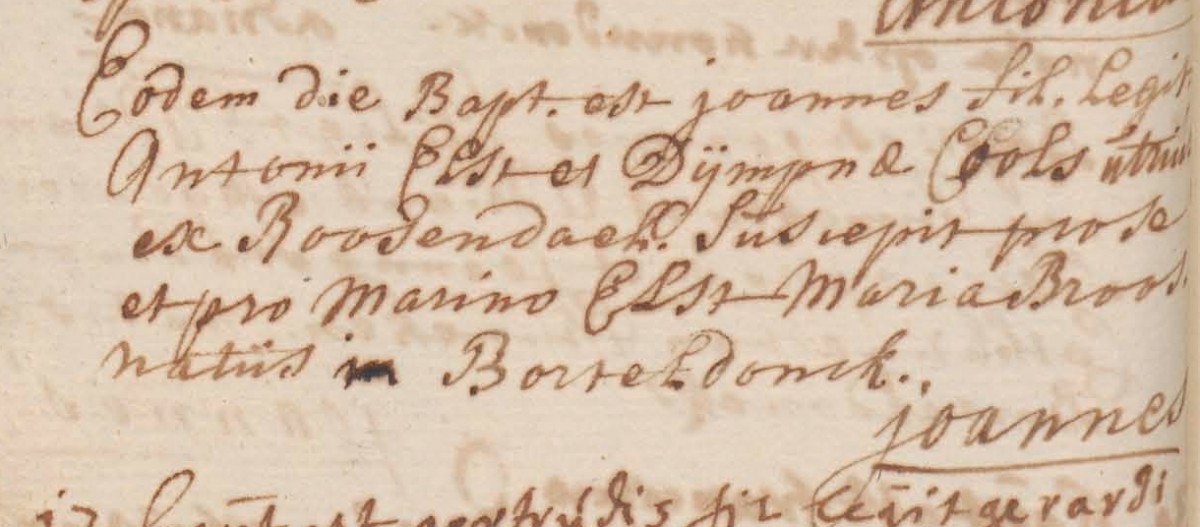 Antonia
Eodem die Bapt. est joannes fil. Legit.
Antonii Elst et Dÿmpnæ Cools utriu
ex Roosendaell. Suscepit pro se
et pro Marino Elst Maria Broos.
natus in Borteldonck.
joannes
17 est gertrudis fil Legit gerardi